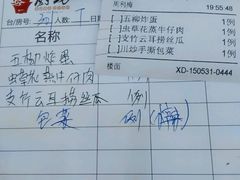 周利梅
19:55:48
□五柳炸蛋 1例
□虫草花蒸牛仔肉 1例
□支竹云耳捞丝瓜 1例
□川炒手撕包菜 1例
楼面 XD-150531-0444
台/房号: 人数
名称
五柳炸蛋
虫草花蒸牛仔肉
支竹云耳捞丝瓜 1例
包菜 例